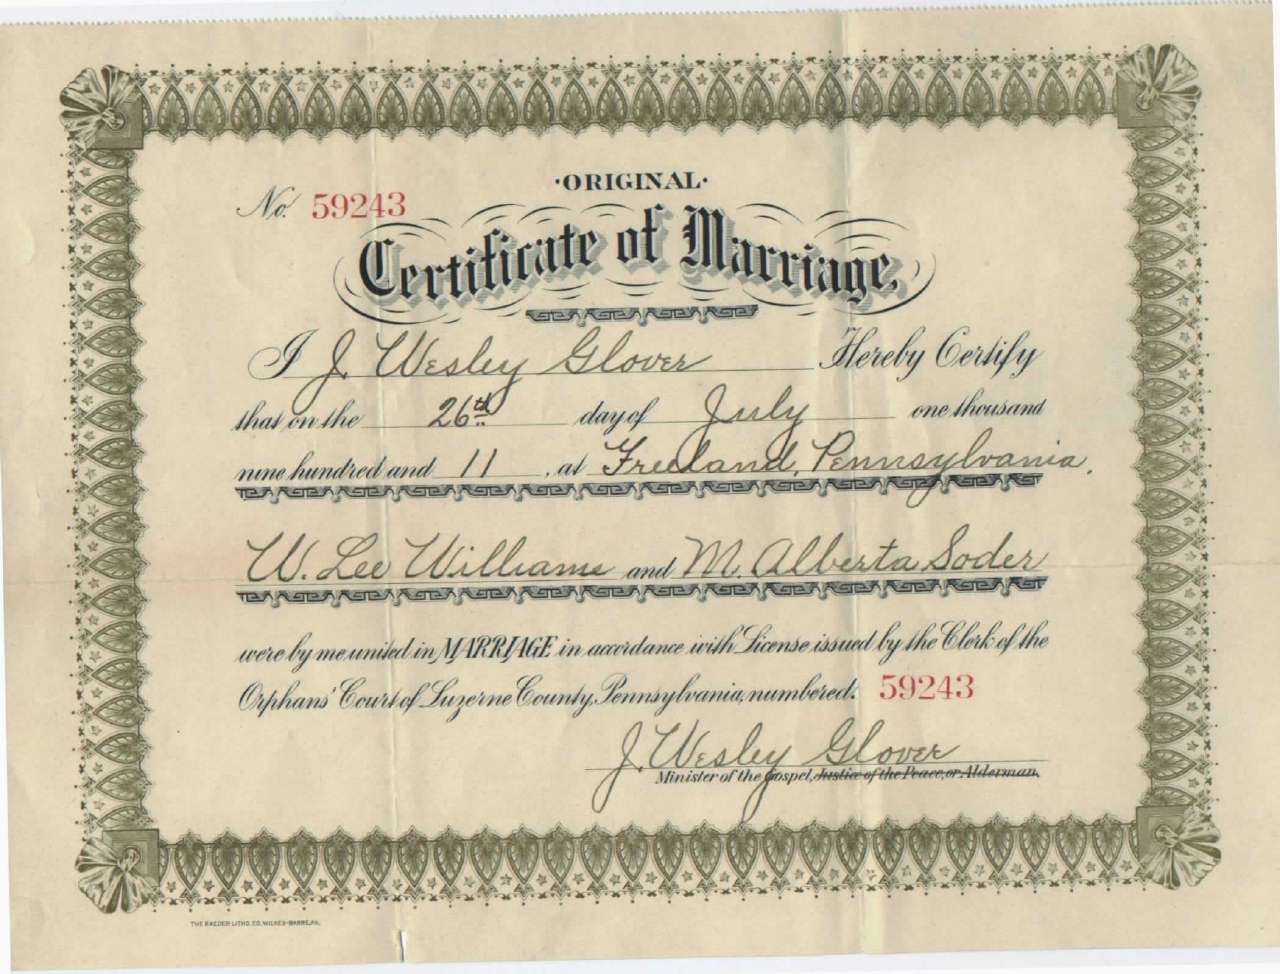 ·ORIGINAL·
No. 59243
Certificate of Marriage,
I J. Wesley Glover Hereby Certify
that on the 26th day of July one thousand
nine hundred and 11, at Freeland, Pennsylvania.
W. Lee Williams and M. Alberta Soder
were by me united in MARRIAGE in accordance with License issued by the Clerk of the
Orphans' Court of Luzerne County, Pennsylvania, numbered: 59243
J. Wesley Glover
Minister of the Gospel, Justice of the Peace, or Alderman.
THE RAEDER LITHO. CO. WILKES-BARRE, PA.